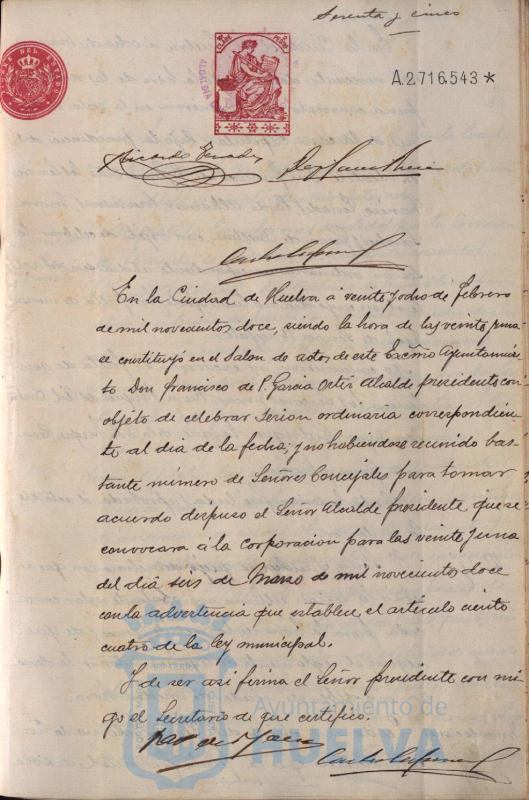 Sesenta y cinco
A.2.716.543*
En la Ciudad de Huelva á veinte y ocho de Febrero
de mil novecientos doce, siendo la hora de las veinte y una
se constituyó en el Salon de actos de este Excmo Ayuntamien-
to Don Francisco de P. Garcia Ortiz Alcalde presidente con
objeto de celebrar sesion ordinaria correspondien-
te al dia de la fecha; y no habiendose reunido bas-
tante número de Señores Concejales para tomar
acuerdo dispuso el Señor Alcalde presidente que se
convocara á la Corporacion para las veinte y una
del dia seis de Marzo de mil novecientos doce
con la advertencia que establece el articulo ciento
cuatro de la ley municipal.
Y de ser asi firma el Señor presidente con mi-
go el Secretario de que certifico.
Ayuntamiento de
HUELVA